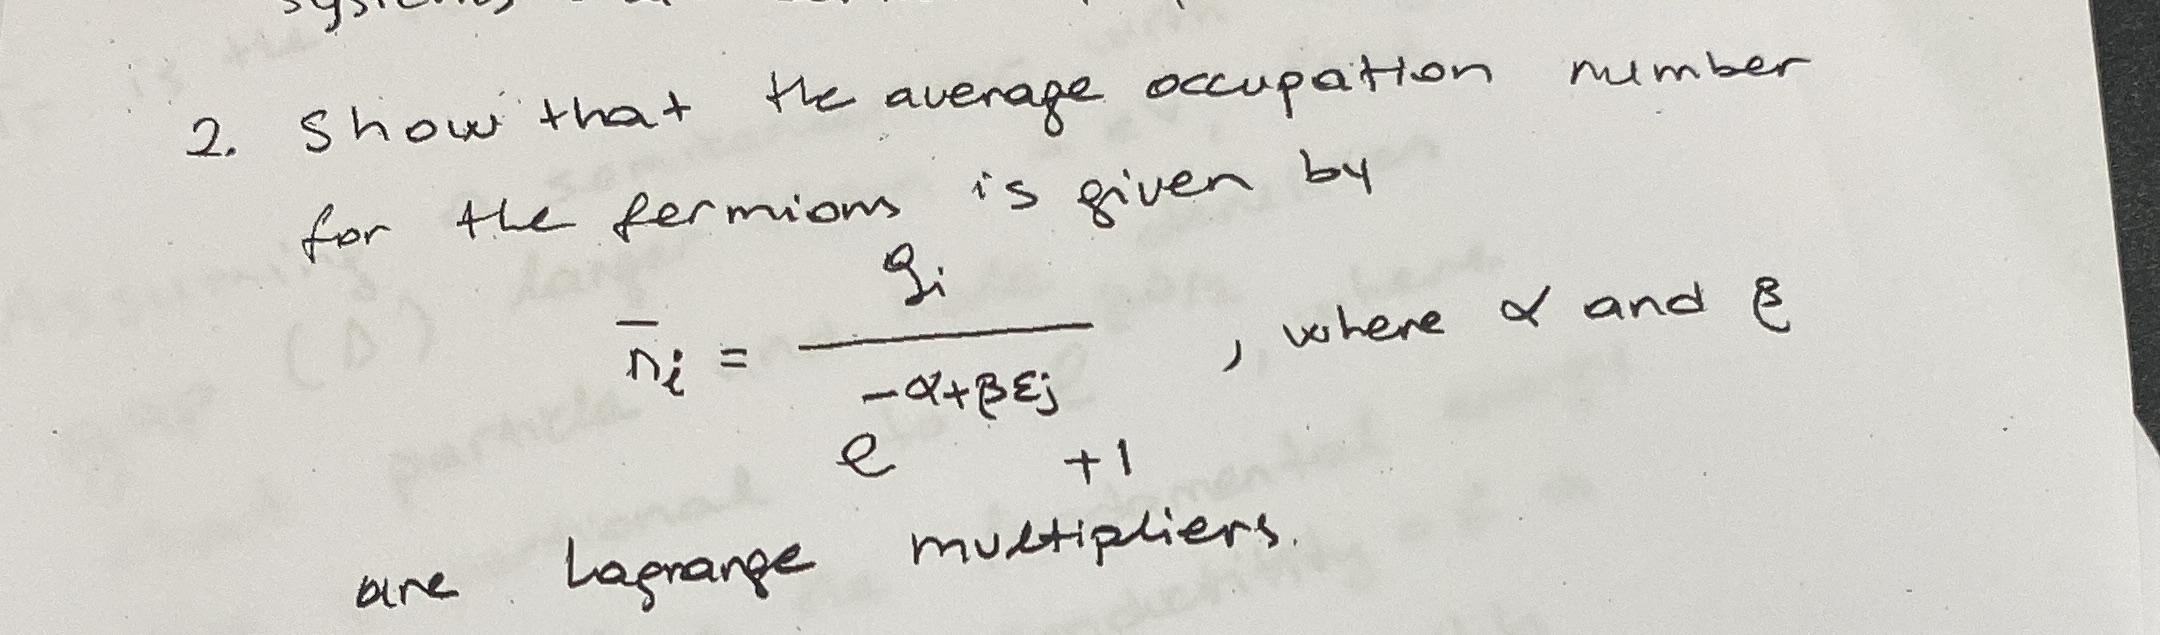 2. Show that the average occupation number
for the fermions is given by
n̄i = gi / e^(-α+βεj) +1 , where α and β
are Lagrange multipliers.